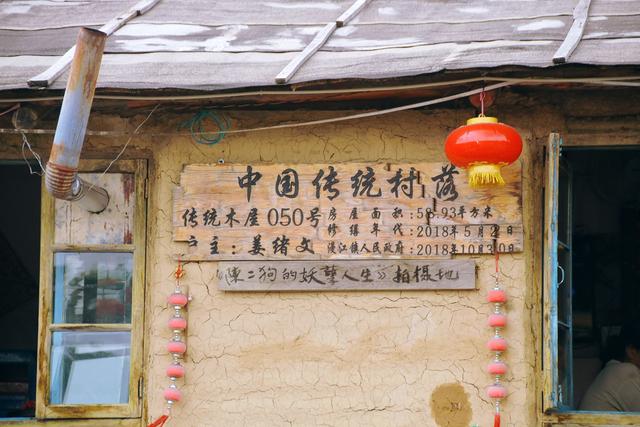 中国传统村落
传统木屋050号
户主：姜绪文
房屋面积：58.93平方米
修缮年代：2018年5月2日
漫江镇人民政府：2018年10月30日
《陈二狗的妖孽人生》拍摄地